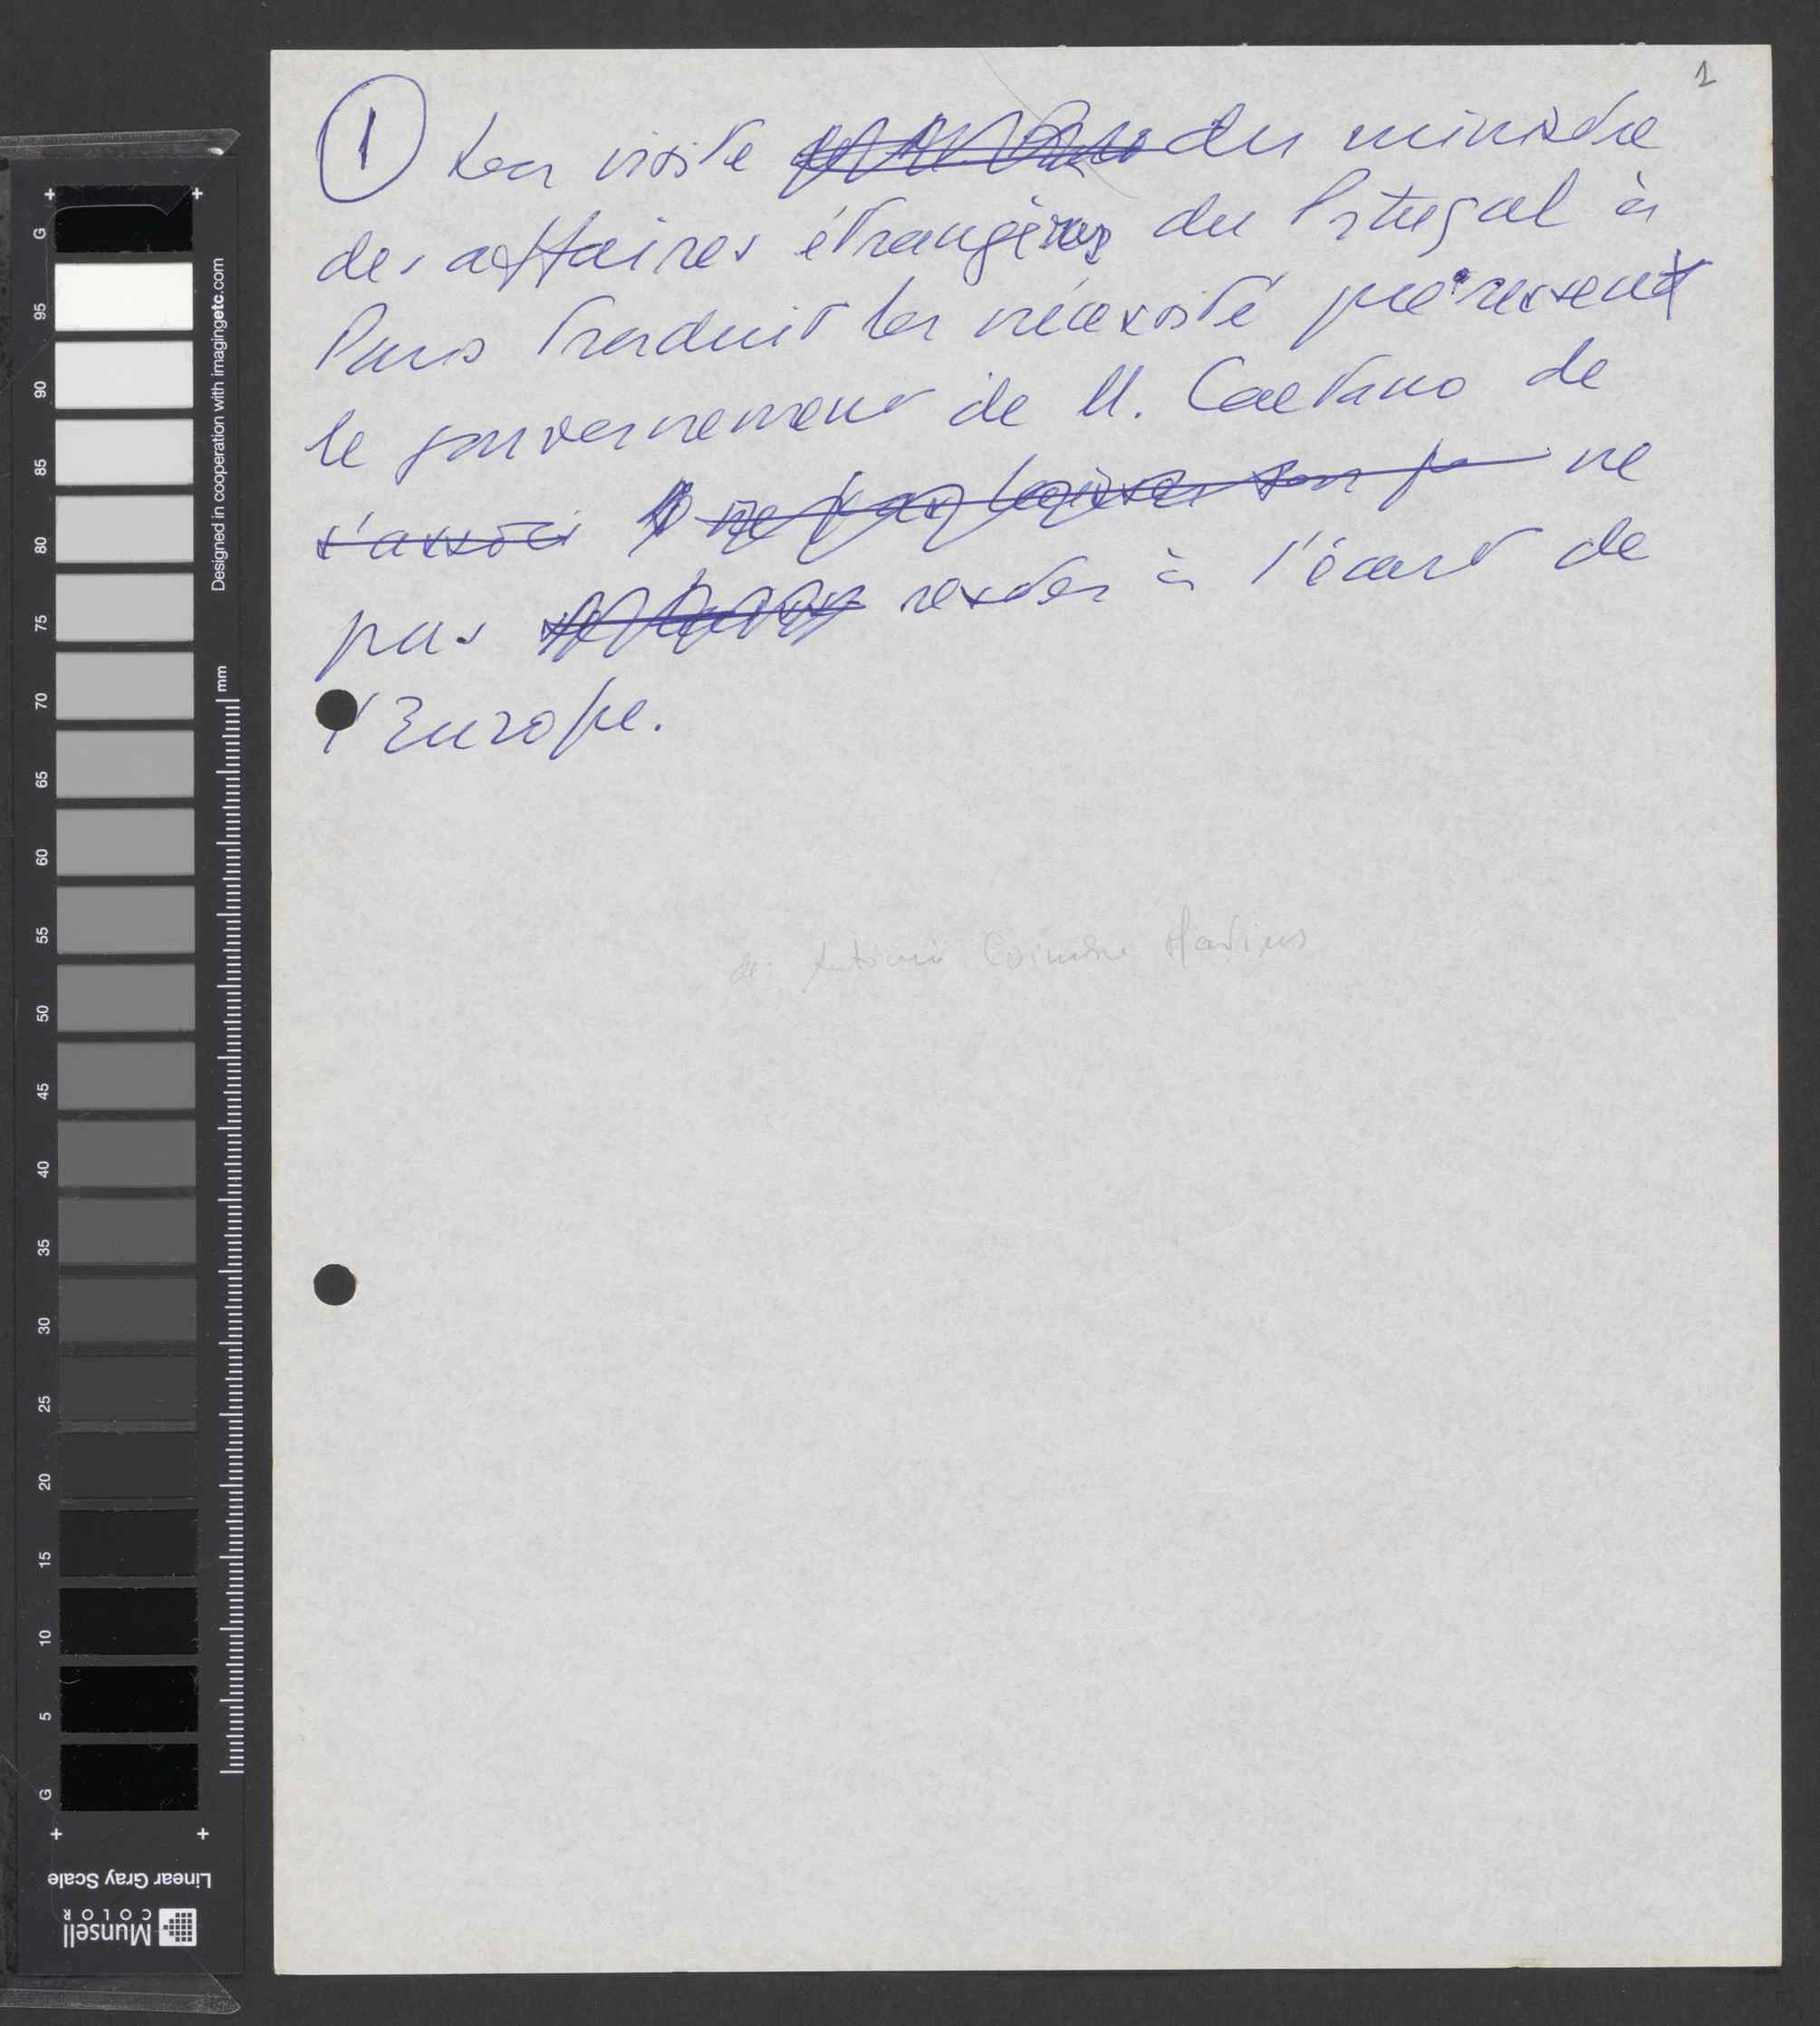 1
① La visite du ministre
des affaires étrangères du Portugal à
Paris traduit la nécessité que ressent
le gouvernement de M. Caetano de
s'associ ne
pas rester à l'écart de
l'Europe.
de: António Coimbra Martins
G
95
90
85
80
75
70
65
60
55
50
45
40
35
30
25
20
15
10
5
G
Designed in cooperation with imagingetc.com
mm
Linear Gray Scale
Munsell
COLOR